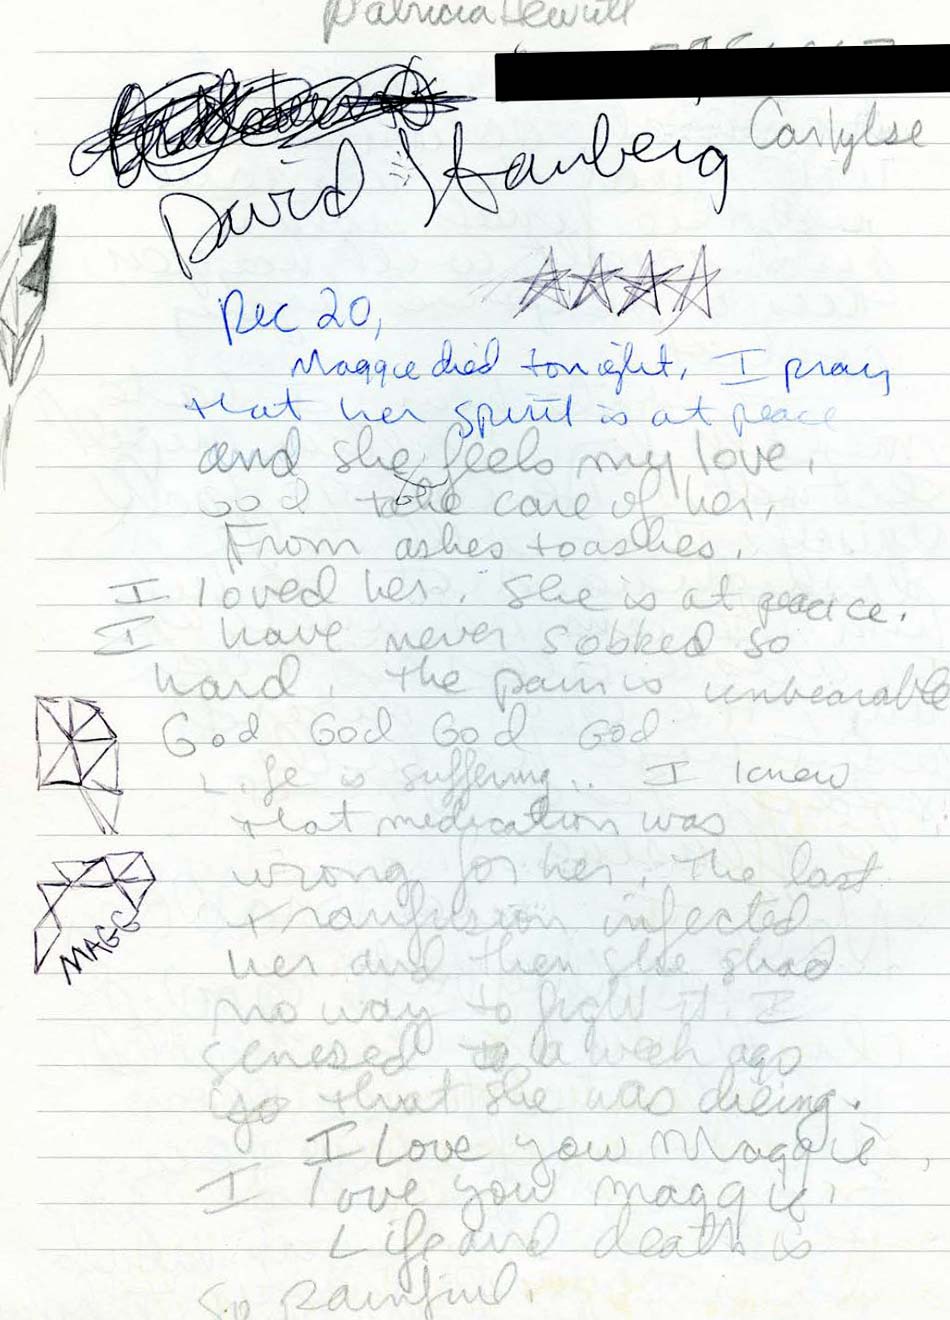 Patricia Hewitt
Carlylse
David Stanberg
Dec 20,
Maggie died tonight. I pray
that her spirit is at peace
and she feels my love.
God take care of her,
From ashes to ashes.
I loved her. She is at peace.
I have never sobbed so
hard. The pain is unbearable
God God God God
Life is suffering.. I knew
that medication was
wrong for her. The last
tranfusion infected
her and then she
no way to fight it. I
a week ago
that she was dieing.
I Love you Maggie,
I love you maggie.
Life and death is
so painful.
MAGG